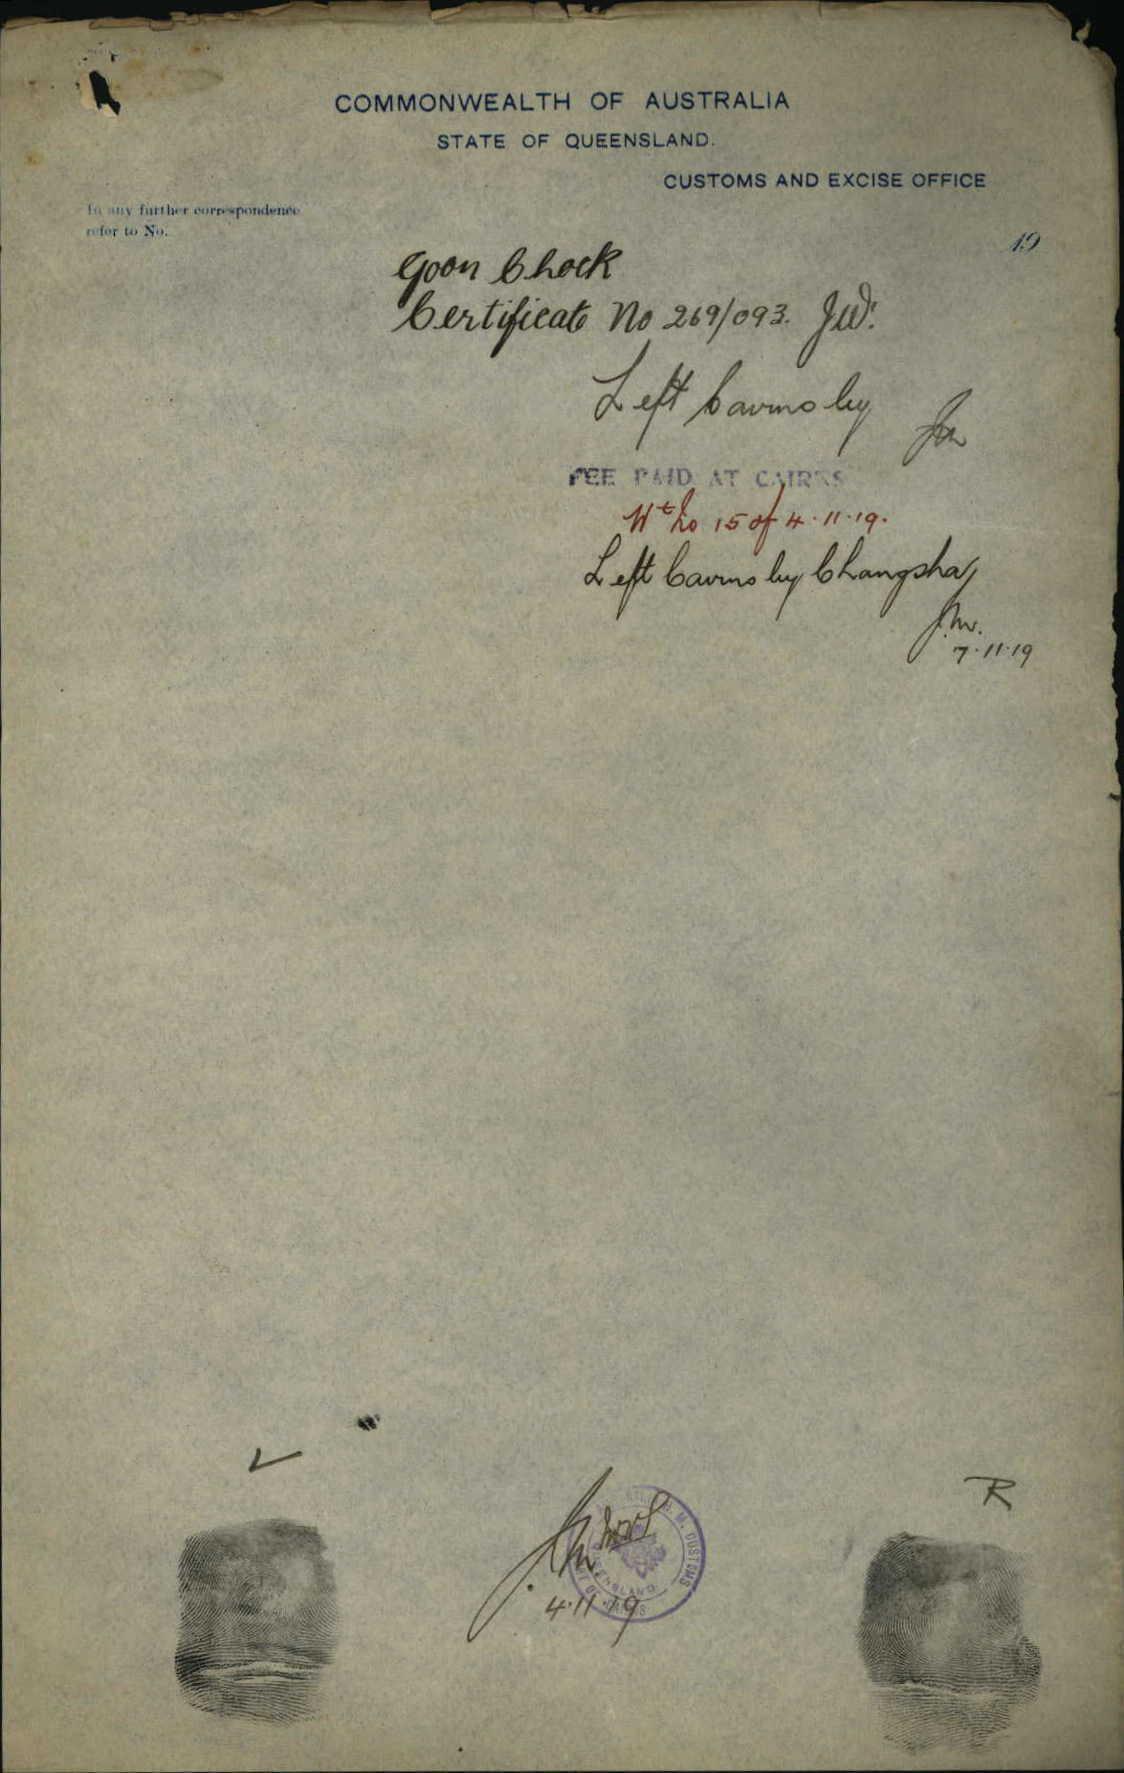 COMMONWEALTH OF AUSTRALIA
STATE OF QUEENSLAND.
CUSTOMS AND EXCISE OFFICE
In any further correspondence
refer to No.
19
Goon Chock
Certificate No 269/093. JW.
Left Cairns by
FEE PAID AT CAIRNS
No 15 of 4.11.19.
Left Cairns by Changsha
7.11.19
L
R
H.M. CUSTOMS
QUEENSLAND
4.11.19